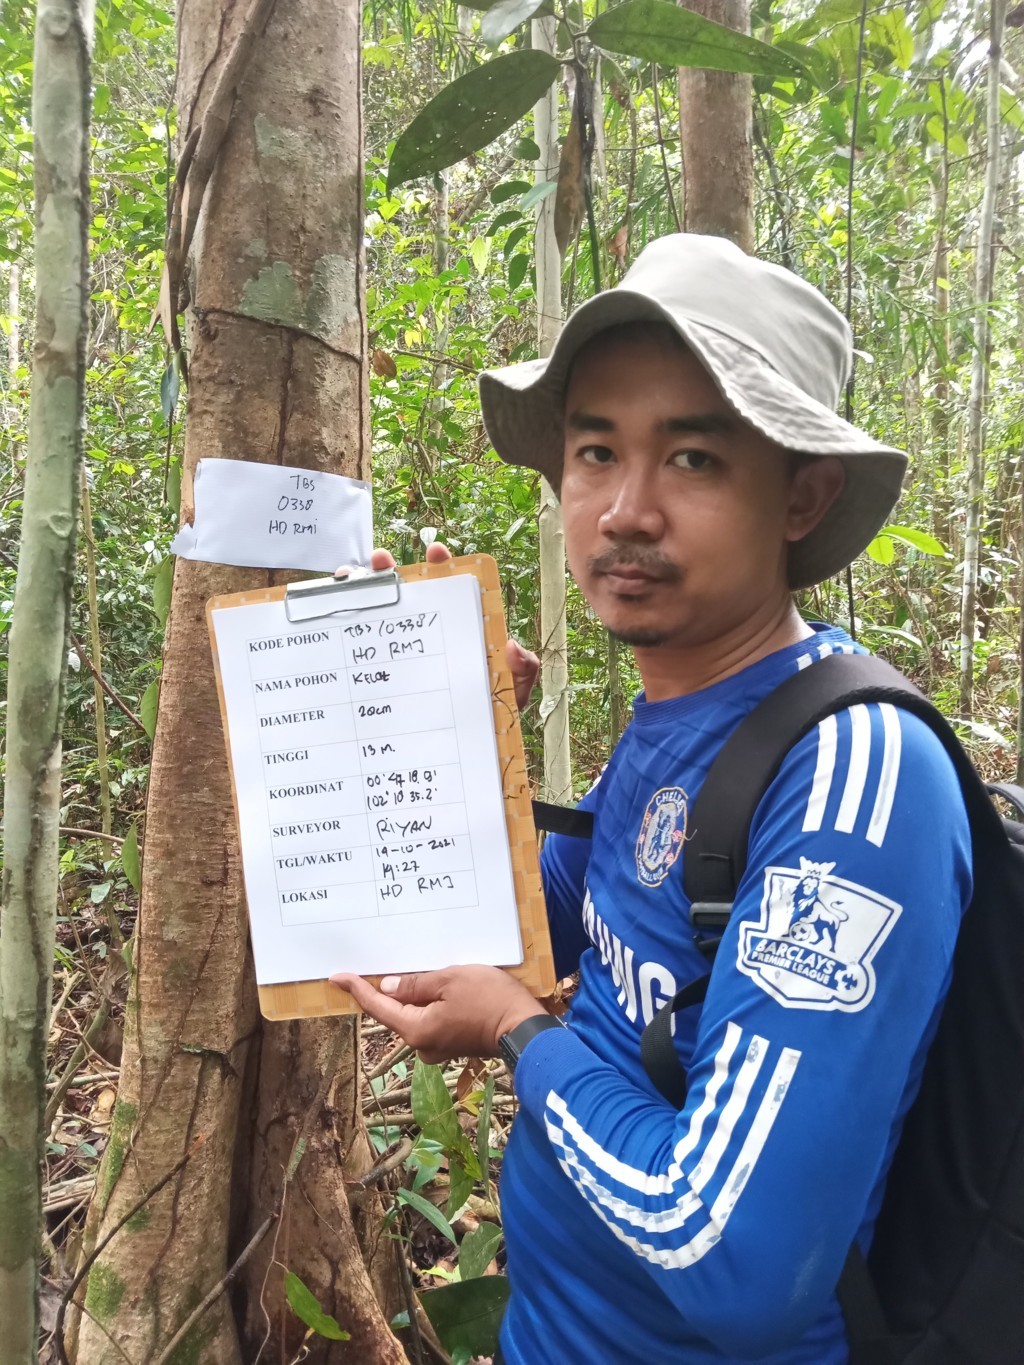 TBS
0338
HD RMJ
KODE POHON TBS/0338/
HD RMJ
NAMA POHON
DIAMETER 20cm
TINGGI 13 M.
KOORDINAT 00° 47' 18.9'
102° 10' 35.2'
SURVEYOR RIYAN
TGL/WAKTU 14-10-2021
14:27
LOKASI HD RMJ
CHELSEA
FOOTBALL CLUB
BARCLAYS
PREMIER LEAGUE